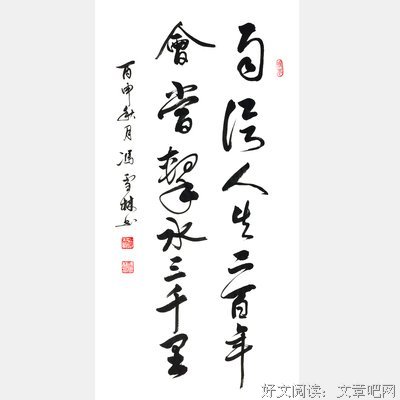 自信人生二百年
會當擊水三千里
丙申秋月冯雪林书
好文阅读：文章吧网